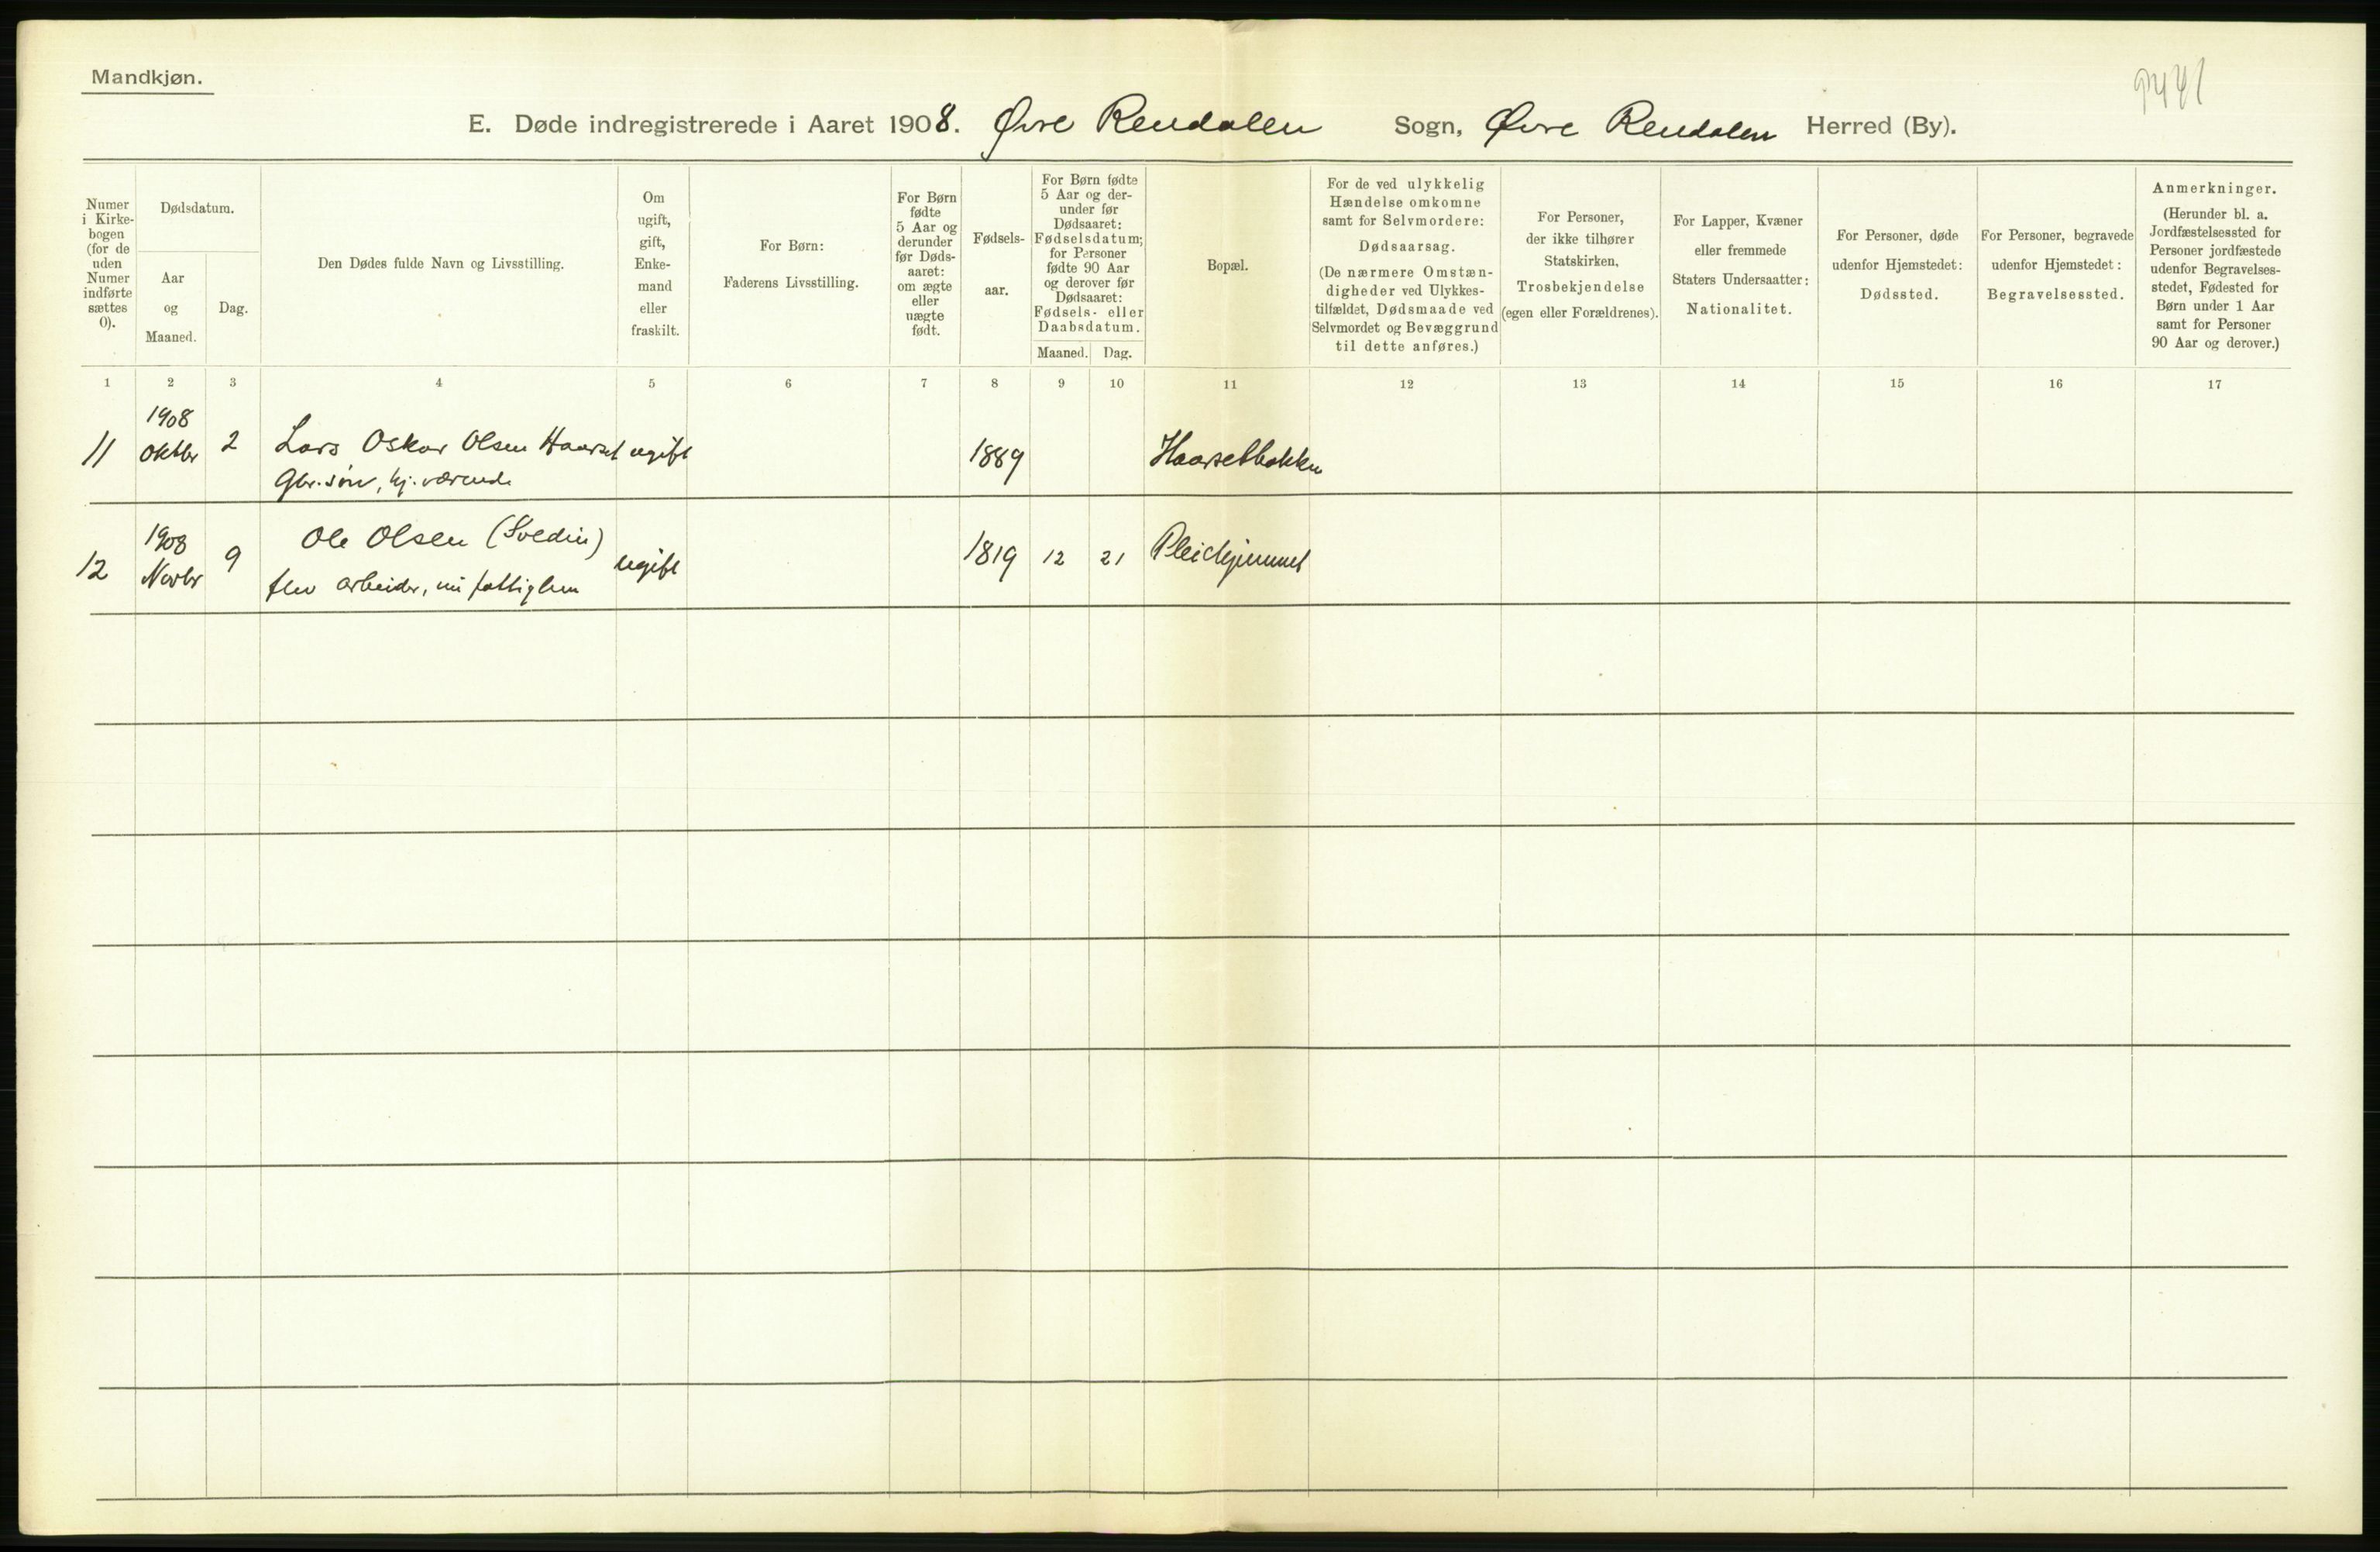 Mandkjøn.
9441
E. Døde indregistrerede i Aaret 1908. Øvre Rendalen Sogn, Øvre Rendalen Herred (By).
Numer i Kirkebogen (for de uden Numer indførte sættes 0).
Dødsdatum.
Aar og Maaned.
Dag.
Den Dødes fulde Navn og Livsstilling.
Om ugift, gift, Enkemand eller fraskilt.
For Børn:
Faderens Livsstilling.
For Børn fødte 5 Aar og derunder før Dødsaaret: om ægte eller uægte født.
Fødselsaar.
For Børn fødte 5 Aar og derunder før Dødsaaret: Fødselsdatum; for Personer fødte 90 Aar og derover før Dødsaaret: Fødsels- eller Daabsdatum.
Maaned. Dag.
Bopæl.
For de ved ulykkelig Hændelse omkomne samt for Selvmordere:
Dødsaarsag.
(De nærmere Omstændigheder ved Ulykkestilfældet, Dødsmaade ved Selvmordet og Bevæggrund til dette anføres.)
For Personer, der ikke tilhører Statskirken,
Trosbekjendelse
(egen eller Forældrenes).
For Lapper, Kvæner eller fremmede Staters Undersaatter:
Nationalitet.
For Personer, døde udenfor Hjemstedet:
Dødssted.
For Personer, begravede udenfor Hjemstedet:
Begravelsessted.
Anmerkninger.
(Herunder bl. a. Jordfæstelsessted for Personer jordfæstede udenfor Begravelsesstedet, Fødested for Børn under 1 Aar samt for Personer 90 Aar og derover.)
1 2 3 4 5 6 7 8 9 10 11 12 13 14 15 16 17
1908
11 Oktbr 2 Lars Oskar Olsen Haarset ugift 1889 Haarsetbakken
Gbr.søn, hj.værende
1908 Ole Olsen (Svedin)
12 Novbr 9 ugift 1819 12 21 Pleiehjemmet
flv arbeider, nu fattiglem